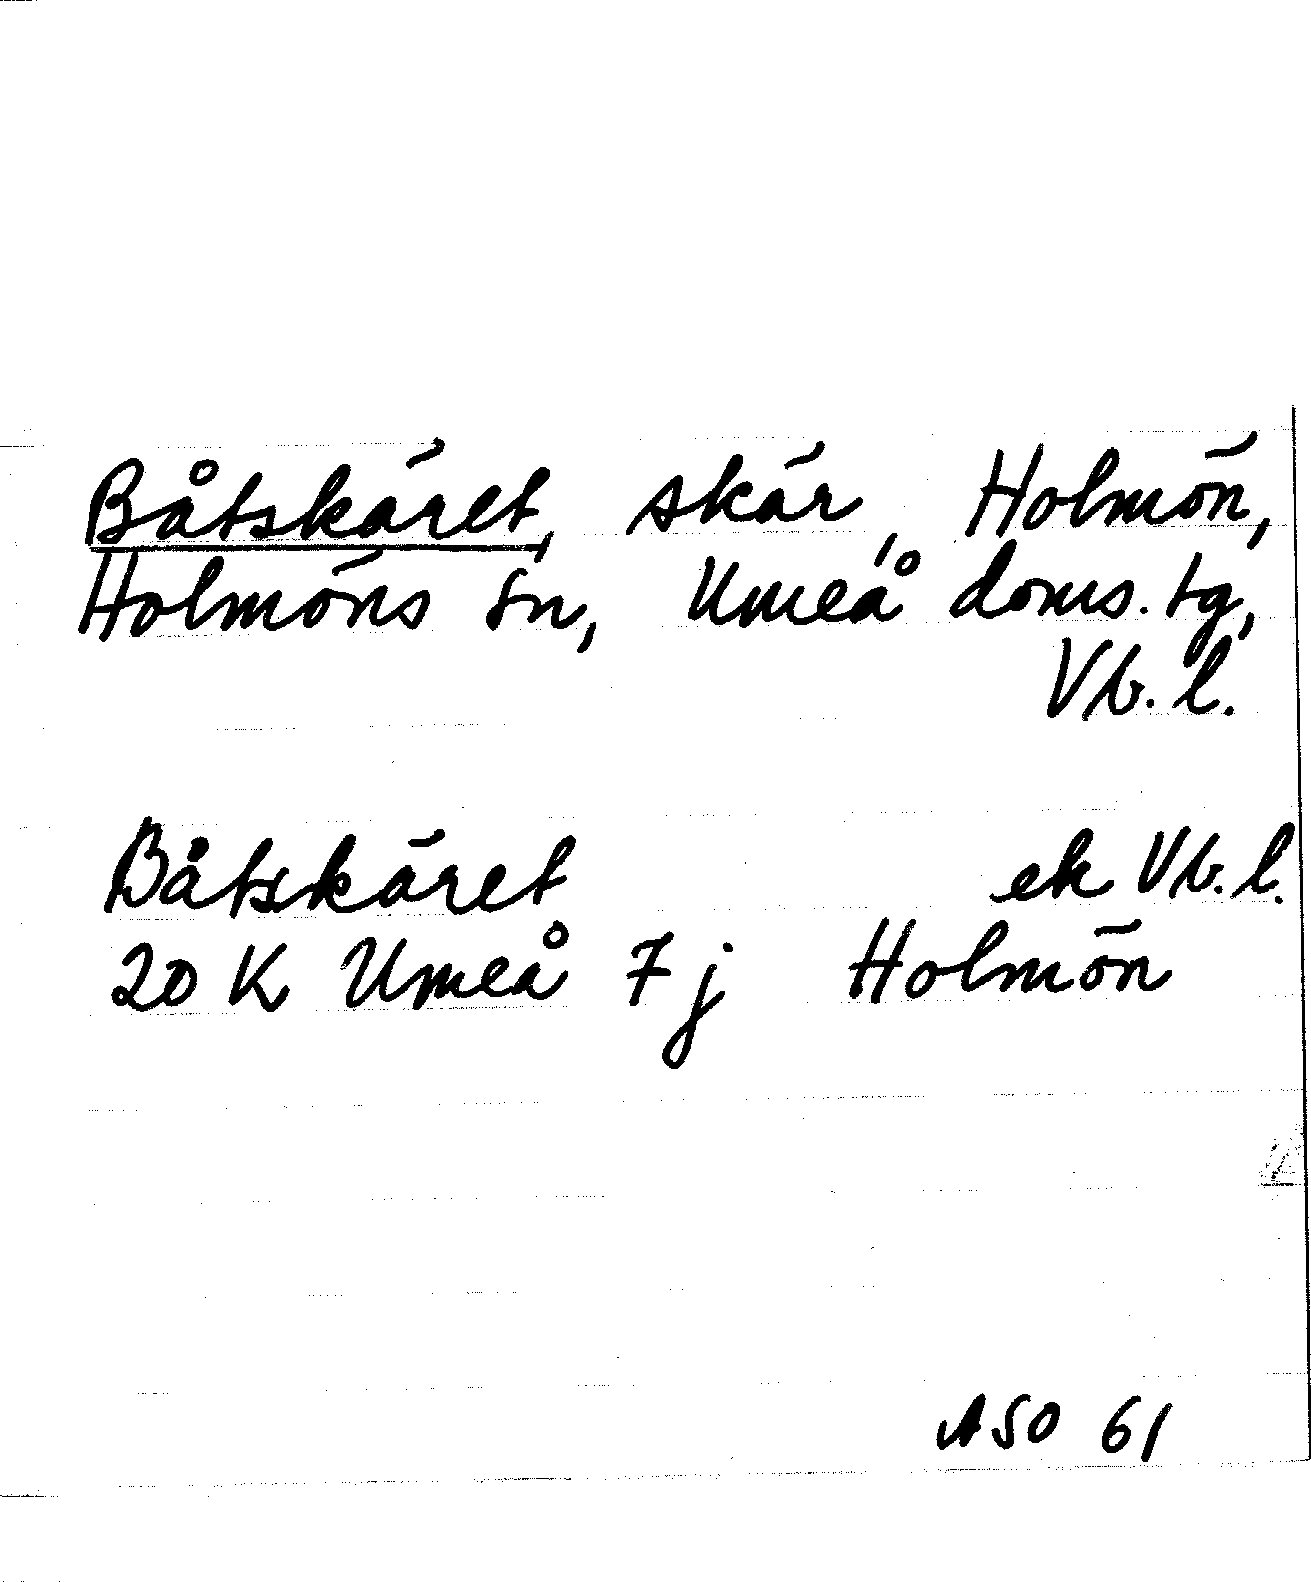 Båtskäret, skär, Holmön,
Holmöns sn, Umeå doms. tg,
Vb. l.
Båtskäret ek Vb. l.
20 K Umeå 7 j Holmön
ASO 61